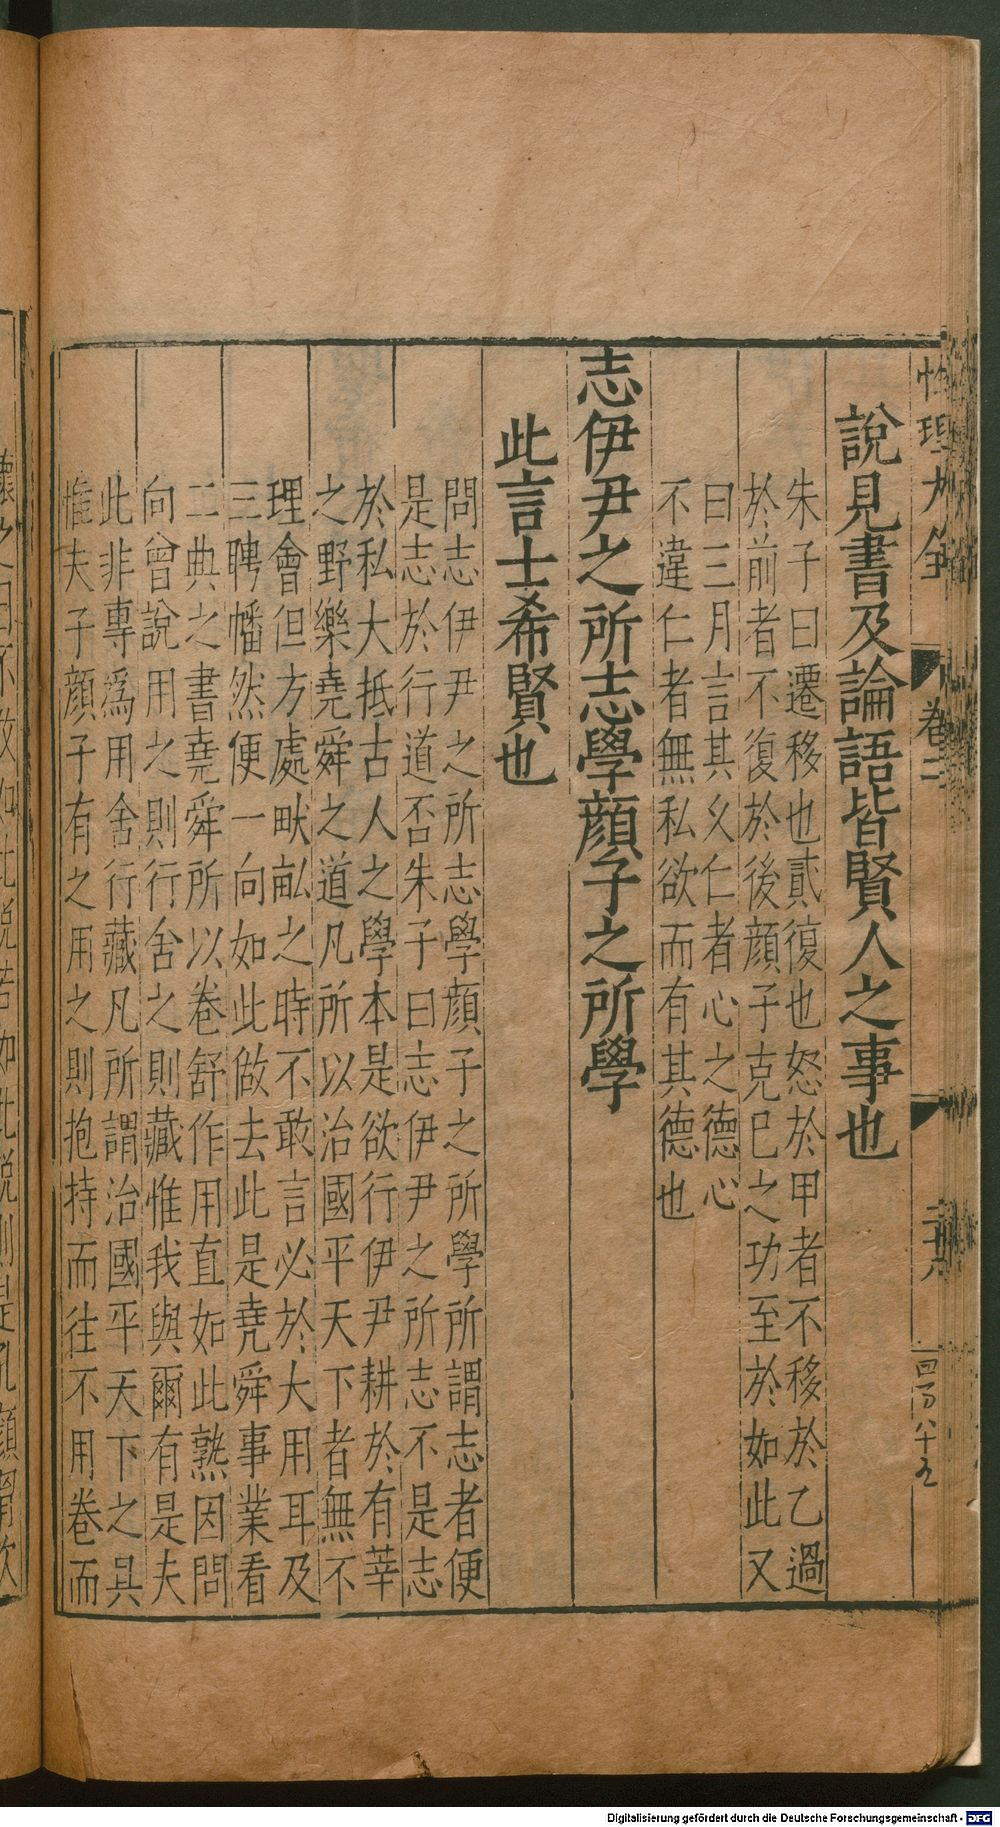 性理大全
卷二
二十八
四百八十五
說見書及論語皆賢人之事也
朱子曰遷移也貳復也怒於甲者不移於乙過
於前者不復於後顔子克已之功至於如此又
曰三月言其乆仁者心之德心
不違仁者無私欲而有其德也
志伊尹之所志學顔子之所學
此言士希賢也
問志伊尹之所志學顔子之所學所謂志者便
是志於行道否朱子曰志伊尹之所志不是志
於私大抵古人之學本是欲行伊尹耕於有莘
之野樂堯舜之道凡所以治國平天下者無不
理會但方處畎畝之時不敢言必於大用耳及
三聘幡然便一向如此做去此是堯舜事業看
二典之書堯舜所以卷舒作用直如此熟因問
向曾說用之則行舍之則藏惟我與爾有是夫
此非專爲用舍行藏凡所謂治國平天下之具
惟夫子顔子有之用之則抱持而往不用卷而
Digitalisierung gefördert durch die Deutsche Forschungsgemeinschaft - DFG